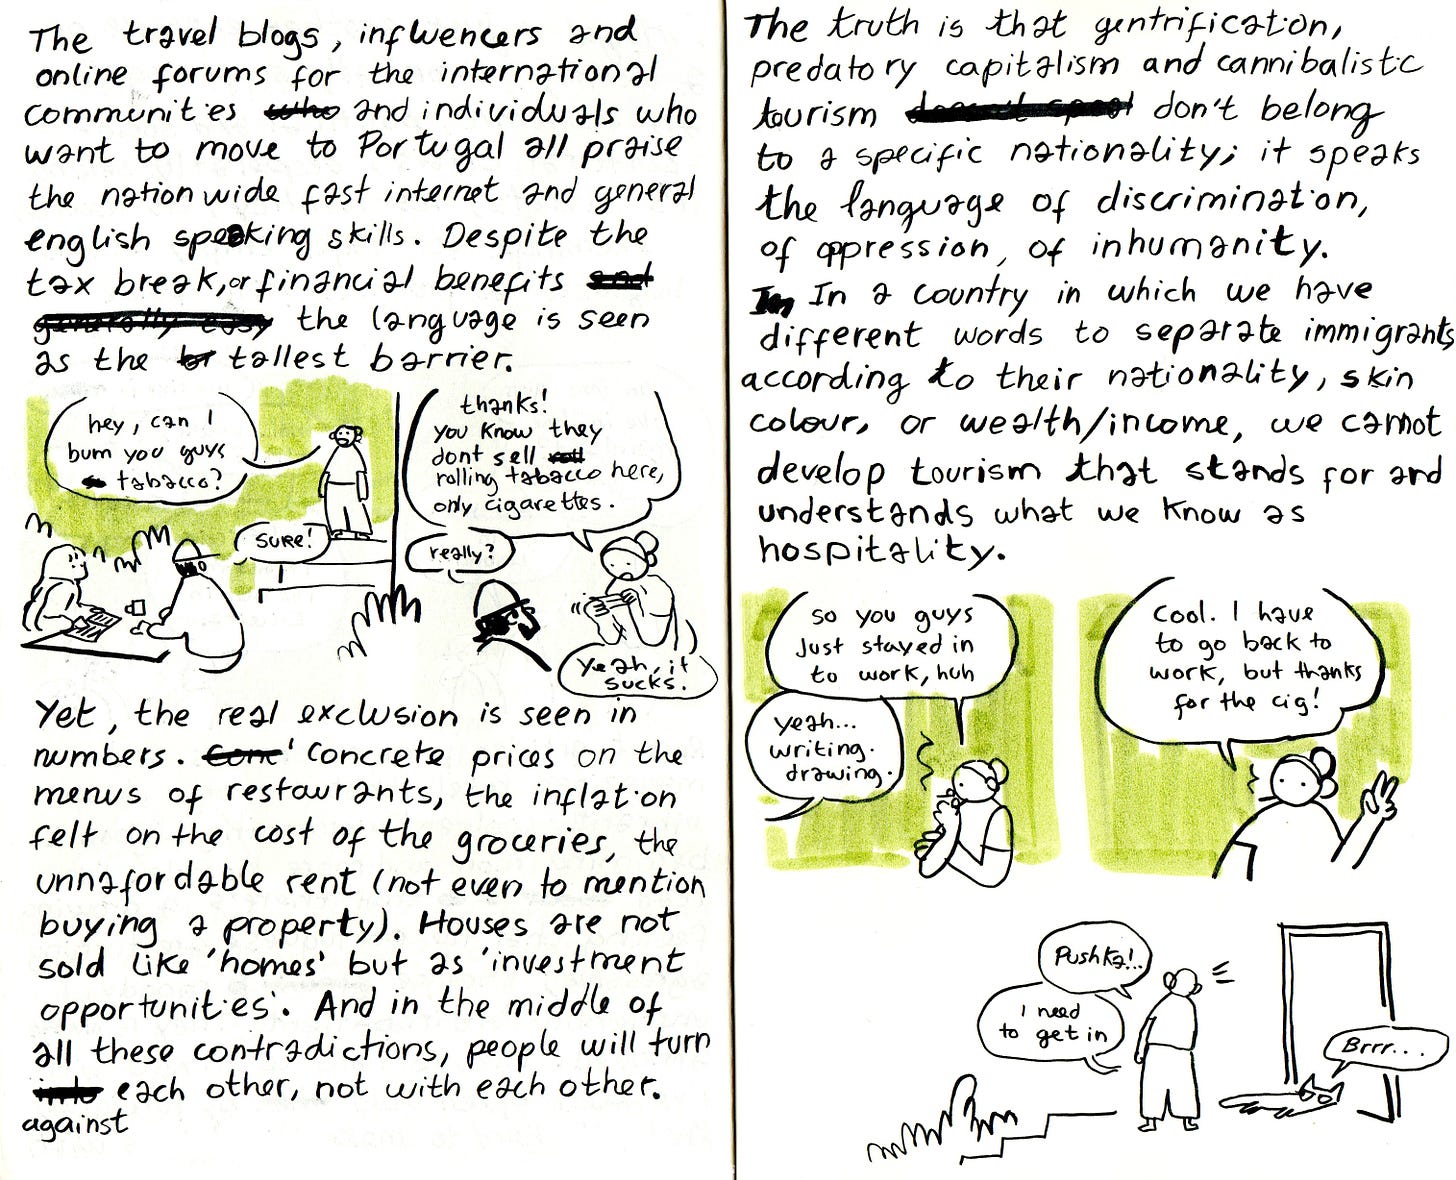 The travel blogs, influencers and
online forums for the international
communities who and individuals who
want to move to Portugal all praise
the nation wide fast internet and general
english speaking skills. Despite the
tax break, or financial benefits and
generally easy the language is seen
as the br tallest barrier.
hey, can I
bum you guys
tabacco?
sure!
thanks!
you know they
dont sell roll
rolling tabacco here,
only cigarettes.
really?
Yeah, it
sucks.
Yet, the real exclusion is seen in
numbers. Conc ' Concrete prices on the
menus of restaurants, the inflation
felt on the cost of the groceries, the
unnafordable rent (not even to mention
buying a property). Houses are not
sold like 'homes' but as 'investment
opportunities'. And in the middle of
all these contradictions, people will turn
into each other, not with each other.
against
The truth is that gentrification,
predatory capitalism and cannibalistic
tourism doesn't speak don't belong
to a specific nationality; it speaks
the language of discrimination,
of oppression, of inhumanity.
In In a country in which we have
different words to separate immigrants
according to their nationality, skin
colour, or wealth/income, we cannot
develop tourism that stands for and
understands what we know as
hospitality.
so you guys
Just stayed in
to work, huh
Yeah...
writing.
drawing.
Cool. I have
to go back to
work, but thanks
for the cig!
Pushka!..
I need
to get in
Brrr...